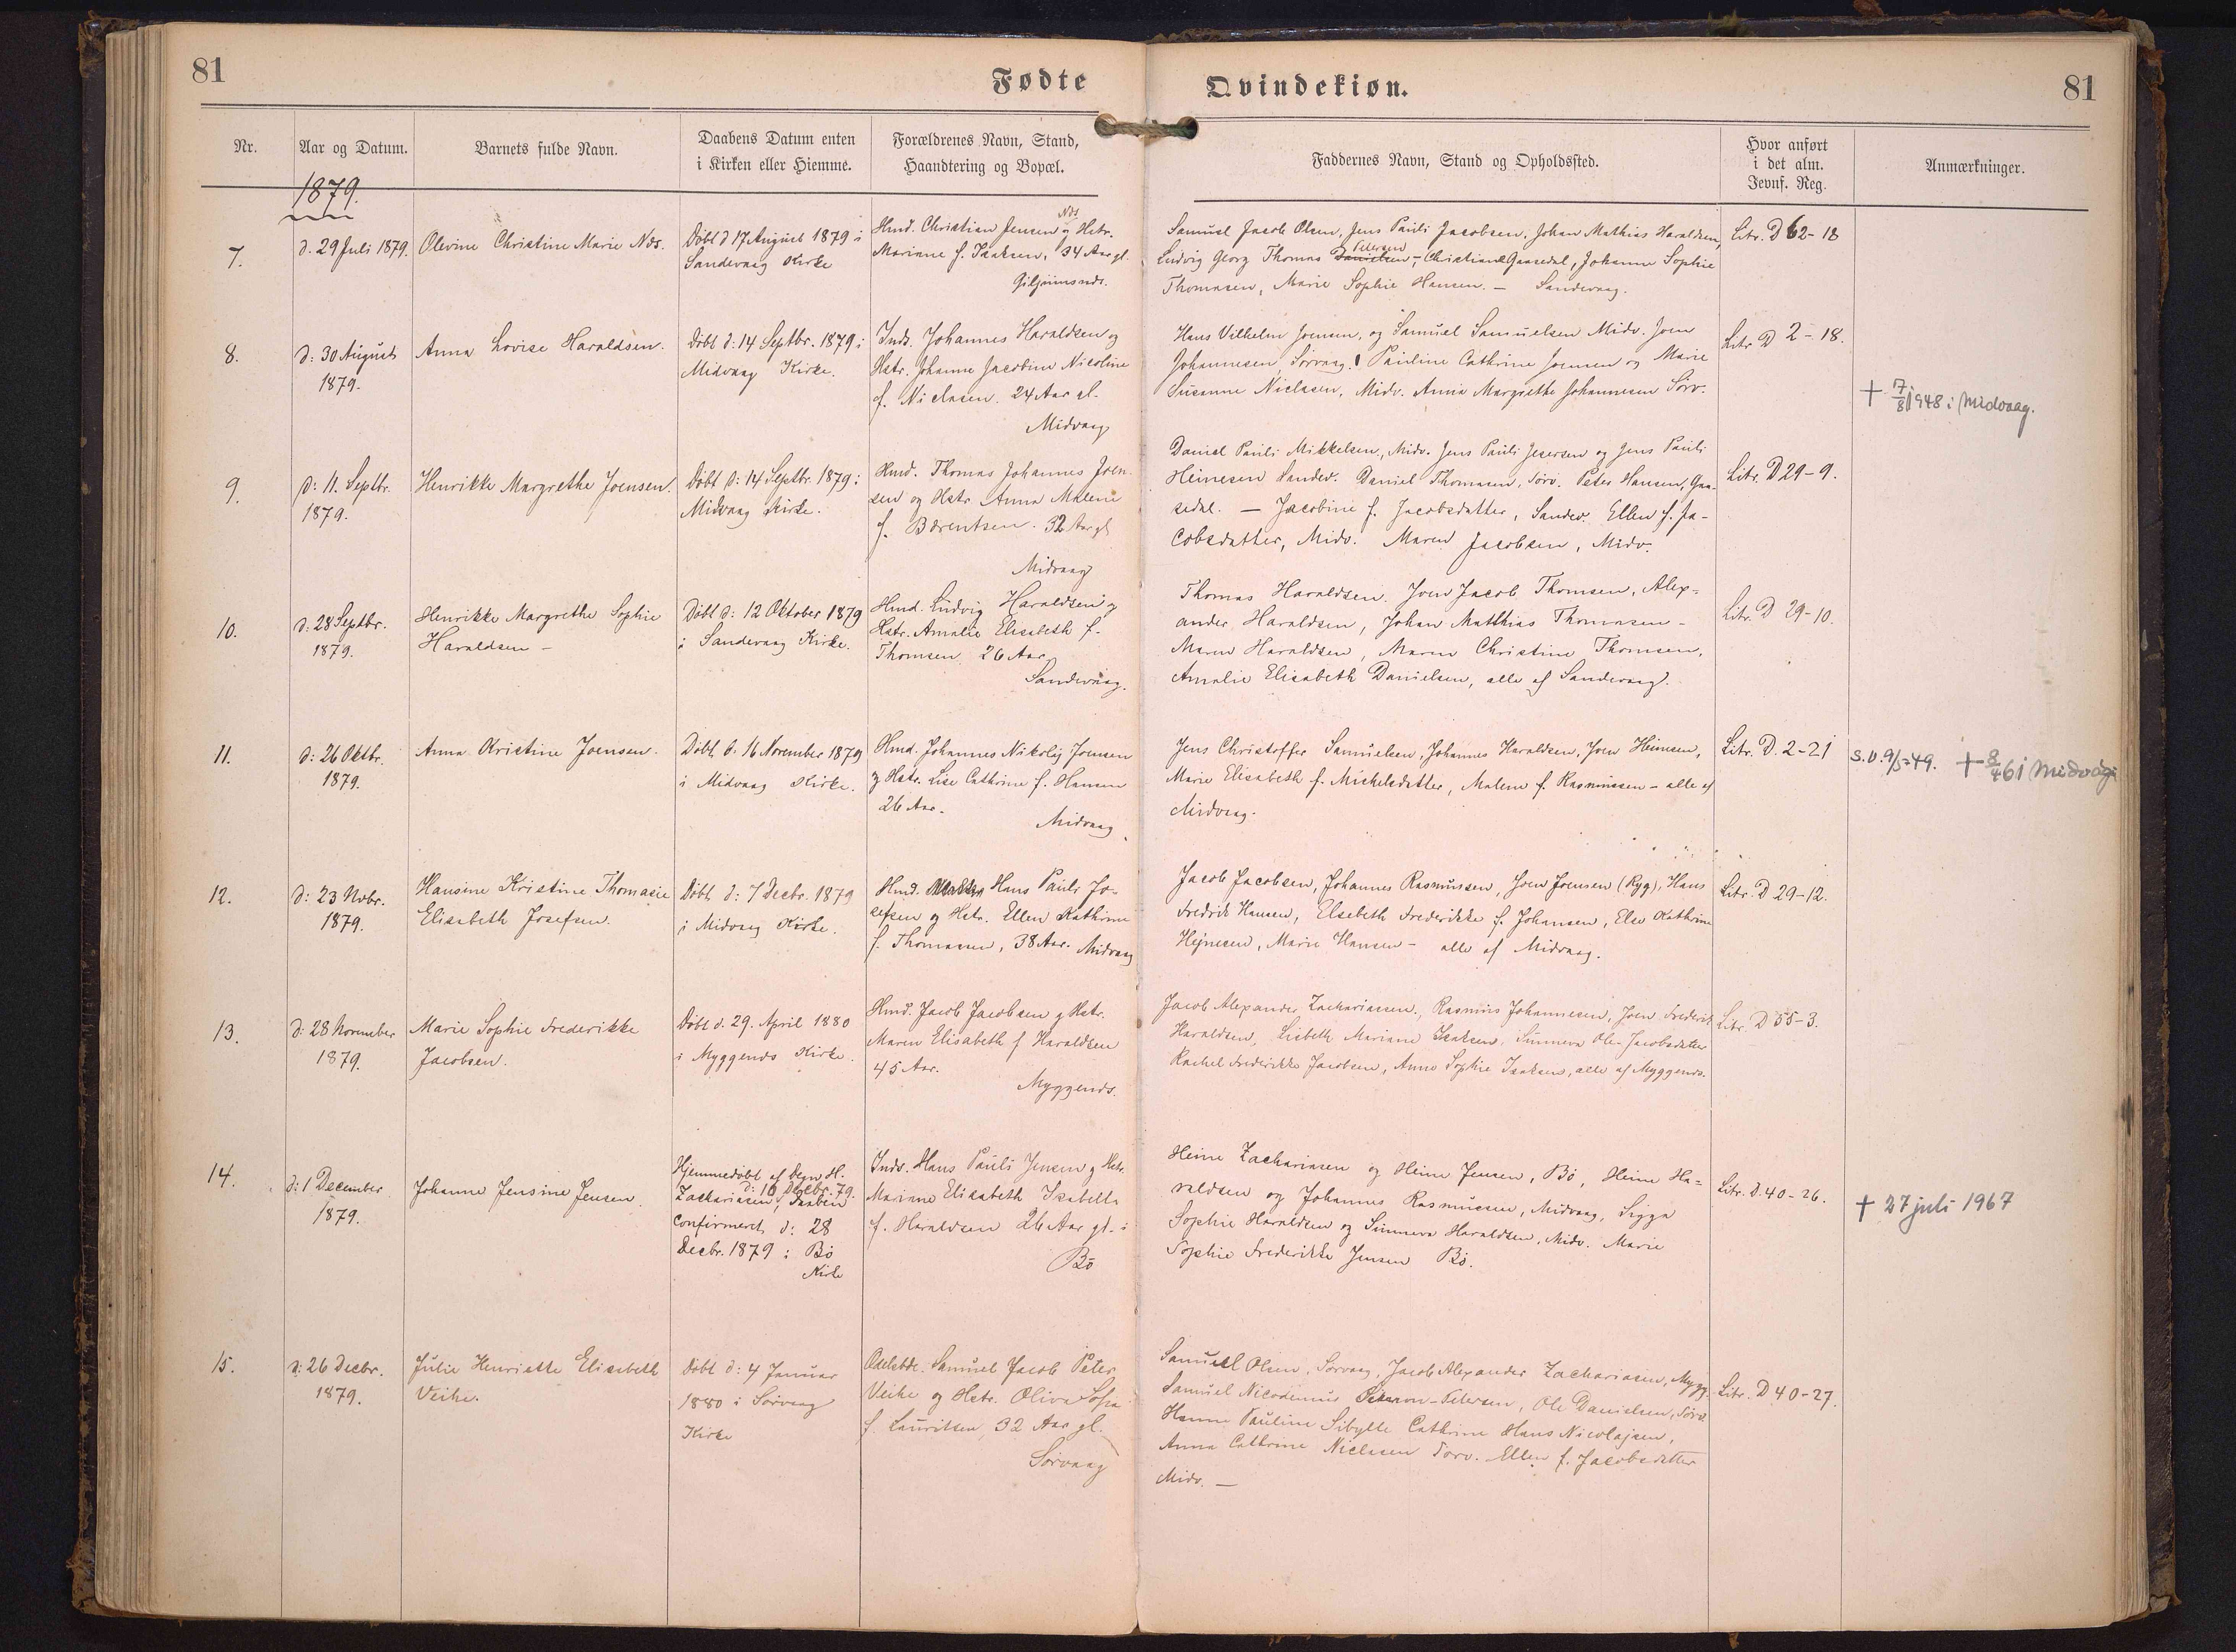 81
Fødte
Qvindekiøn.
81
Nr.
Aar og Datum.
Barnets fulde Navn.
Daabens Datum enten
i Kirken eller Hiemme.
Forældrenes Navn, Stand,
Haandtering og Bopæl.
Faddernes Navn, Stand og Opholdssted.
Hvor anført
i det alm.
Jevnf. Reg.
Anmærkninger.
1879.
7.
d. 29 Juli 1879.
Olevine Christine Marie Nds.
Döbt d 17 August 1879 i
Sandevaag Kirke
Nds
Hmd. Christian Jensen og Hstr.
Mariane f. Isaksen, 34 Aar gl.
Giljumsnds.
Samuel Jacob Olsen, Jens Pauli Jacobsen, Johan Mathias Haraldsen,
Petersen
Ludvig Georg Thomas Danielsen - Christiane Gaasedal, Johanne Sophie
Thomasen, Marie Sophie Hansen. — Sandevaag.
Litr. D 62-18
8.
d: 30 August
1879.
Anna Lovise Haraldsen.
Döbt d: 14 Septbr. 1879 i
Midvaag Kirke.
Inds. Johannes Haraldsen og
Hstr. Johanne Jacobine Nicoline
f. Niclasen. 24 Aar gl.
Midvaag
Hans Vilhelm Joensen, og Samuel Samuelsen Midv. Joen
Johannesen, Sörvaag. Pauline Cathrine Joensen og Marie
Susanne Niclasen, Midv. Anna Margrethe Johannesen Sörv.
Litr. D 2-18.
† 7/8 1948 i Midvaag.
9.
d: 11. Septbr.
1879.
Henrikke Margrethe Joensen.
Döbt d: 14 Septbr. 1879 i
Midvaag Kirke.
Hmd. Thomas Johannes Joen-
sen og Hstr. Anna Malene
f. Bærentsen. 32 Aar gl
Midvaag
Daniel Pauli Mikkelsen, Midv. Jens Pauli Jesersen og Jens Pauli
Heinesen Sandev. Daniel Thomasen, Sörv. Peter Hansen, Gaa-
sedal. — Jacobine f. Jacobsdatter, Sandev. Ellen f. Ja-
cobsdatter, Midv. Maren Jacobsen, Midv.
Litr. D 29-9.
10.
d: 28 Septbr.
1879.
Henrikke Margrethe Sophie
Haraldsen -
Döbt d: 12 Oktober 1879
i Sandevaag Kirke.
Hmd. Ludvig Haraldsen og
Hstr. Amalie Elisabeth f.
Thomsen 26 Aar
Sandevaag.
Thomas Haraldsen. Joen Jacob Thomsen, Alex-
ander Haraldsen, Johan Matthias Thomasen -
Maren Haraldsen, Maren Christine Thomsen,
Amalie Elisabeth Danielsen, alle af Sandevaag.
Litr. D 29-10.
11.
d: 26 Oktbr.
1879.
Anna Kristine Joensen.
Döbt d: 16 November 1879
i Midvaag Kirke.
Hmd. Johannes Nikolaj Joensen
og Hstr. Lise Cathrine f. Hansen
26 Aar.
Midvaag
Jens Christoffer Samuelsen, Johannes Haraldsen, Joen Heinesen,
Marie Elisabeth f. Michelsdatter, Malene f. Rasmussen - alle af
Midvaag.
Litr. D. 2-21
S.D. 9/5-49. † 8/4 61 i Midvági
12.
d: 23 Nvbr.
1879.
Hansine Kristine Thomasie
Elisabeth Josefsen.
Döbt d: 7 Decbr. 1879
i Midvaag Kirke.
Hmd. Hans Pauli Jo-
sefsen og Hstr. Ellen Kathrine
f. Thomassen, 38 Aar. Midvaag
Jacob Jacobsen, Johannes Rasmussen, Joen Joensen (Ryg), Hans
Fredrik Hansen, Elsebeth Frederikke f. Johansen, Else Kathrine
Hejnesen, Marie Hansen - alle af Midvaag.
Litr. D 29-12.
13.
d: 28 November
1879.
Marie Sophie Frederikke
Jacobsen.
Döbt d. 29. April 1880
i Myggends Kirke.
Hmd. Jacob Jacobsen og Hstr.
Maren Elisabeth f Haraldsen
45 Aar.
Myggends.
Jacob Alexander Zachariassen, Rasmus Johannesen, Joen Frederik
Haraldsen, Lisbeth Mariane Isaksen, Sunneva Ole-Jacobsdatter
Rachel Frederikke Jacobsen, Anne Sophie Isaksen, alle af Myggenæs.
Litr. D 55-3.
14.
d: 1 December
1879.
Johanne Jensine Jensen.
Hjemmedöbt af Degn H.
d: 16 Decbr. 79.
Zachariasen, Daaben
confirmeret d: 28
Decbr. 1879 i Bö
Kirke
Inds. Hans Pauli Jensen og Hstr.
Mariane Elisabeth Isabella
f. Haraldsen 26 Aar gl. i
Bö
Heine Zachariasen og Heine Jensen, Bö, Heine Ha-
raldsen og Johannes Rasmussen, Midvaag, Sigga
Sophie Haraldsen og Sunneva Haraldsen, Midv. Marie
Sophie Frederikke Jensen Bö.
Litr. D. 40-26.
† 27 juli 1967
15.
d: 26 Decbr.
1879.
Julie Henriette Elisabeth
Veihe.
Döbt d: 4 Januar
1880 i Sörvaag
Kirke
Odelsbd. Samuel Jacob Peter
Veihe og Hstr. Oliva Sofia
f. Lauritsen, 32 Aar gl.
Sörvaag
Samuel Olsen, Sörvaag, Jacob Alexander Zachariasen, Mygg.
Samuel Nicodemus Petersen, Ole Danielsen, Sörv.
Hanne Pauline Sibylle Cathrine Hans Nicolajsen,
Anna Cathrine Niclasen Sörv. Ellen f. Jacobsdatter
Midv. —
Litr. D 40-27.